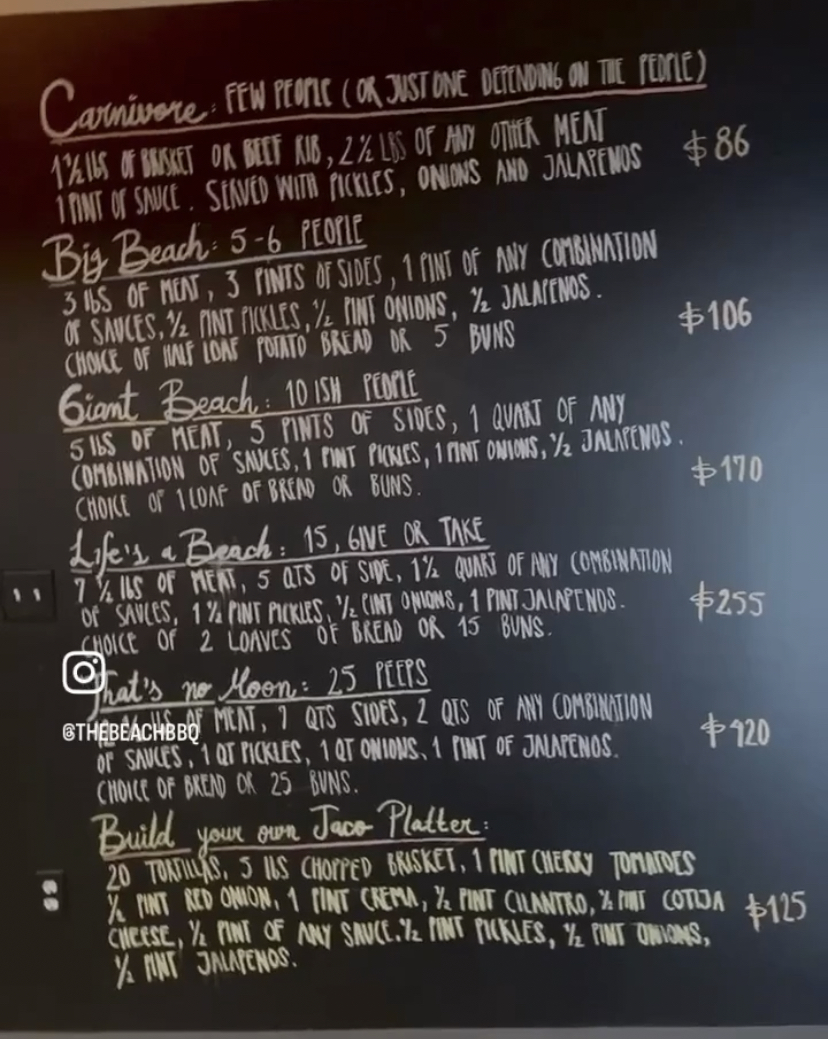 Carnivore: FEW PEOPLE (OR JUST ONE DEPENDING ON THE PEOPLE)
1½ lbS OF BRISKET OR BEEF RIB, 2½ LBS OF ANY OTHER MEAT
1 PINT OF SAUCE. SERVED WITH PICKLES, ONIONS AND JALAPENOS
$86
Big Beach: 5-6 PEOPLE
3 lbS OF MEAT, 3 PINTS OF SIDES, 1 PINT OF ANY COMBINATION
OF SAUCES, ½ PINT PICKLES, ½ PINT ONIONS, ½ JALAPENOS.
CHOICE OF HALF LOAF POTATO BREAD OR 5 BUNS
$106
Giant Beach: 10 ISH PEOPLE
5 lbS OF MEAT, 5 PINTS OF SIDES, 1 QUART OF ANY
COMBINATION OF SAUCES, 1 PINT PICKLES, 1 PINT ONIONS, ½ JALAPENOS.
CHOICE OF 1 LOAF OF BREAD OR BUNS.
$170
Life's a Beach: 15, GIVE OR TAKE
7 ½ lbS OF MEAT, 5 QTS OF SIDE, 1½ QUART OF ANY COMBINATION
OF SAUCES, 1½ PINT PICKLES, ½ PINT ONIONS, 1 PINT JALAPENOS.
CHOICE OF 2 LOAVES OF BREAD OR 15 BUNS.
$255
That's no Moon: 25 PEEPS
OF MEAT, 7 QTS SIDES, 2 QTS OF ANY COMBINATION
@THEBEACHBBQ
OF SAUCES, 1 QT PICKLES, 1 QT ONIONS, 1 PINT OF JALAPENOS.
CHOICE OF BREAD OR 25 BUNS.
Build your own Taco Platter:
20 TORTILLAS, 5 lbS CHOPPED BRISKET, 1 PINT CHERRY TOMATOES
½ PINT RED ONION, 1 PINT CREMA, ½ PINT CILANTRO, ½ PINT COTIJA
CHEESE, ½ PINT OF ANY SAUCE. ½ PINT PICKLES, ½ PINT ONIONS,
½ PINT JALAPENOS.
$125